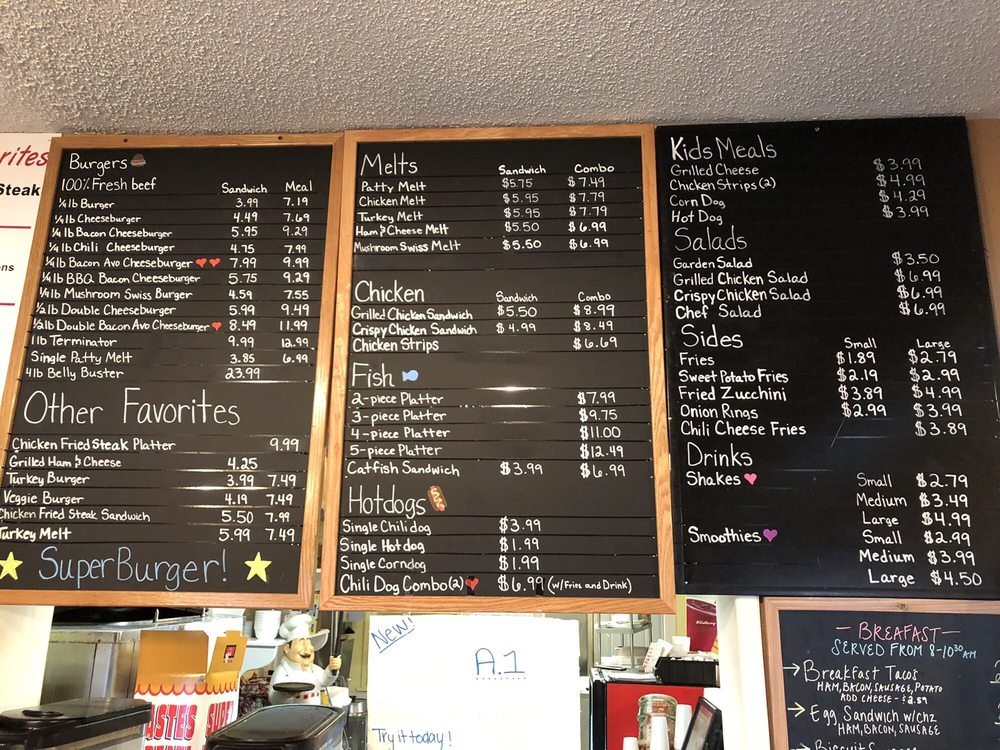 rites
Steak
ns
Burgers
100% Fresh beef Sandwich Meal
1/4 lb Burger 3.99 7.19
1/4 lb Cheeseburger 4.49 7.69
1/4 lb Bacon Cheeseburger 5.95 9.29
1/4 lb Chili Cheeseburger 4.75 7.99
1/4 lb Bacon Avo Cheeseburger 7.99 9.99
1/4 lb BBQ Bacon Cheeseburger 5.75 9.29
1/4 lb Mushroom Swiss Burger 4.59 7.55
1/2 lb Double Cheeseburger 5.99 9.49
1/2 lb Double Bacon Avo Cheeseburger 8.49 11.99
1 lb Terminator 9.99 12.99
Single Patty Melt 3.85 6.99
4 lb Belly Buster 23.99
Other Favorites
Chicken Fried Steak Platter 9.99
Grilled Ham & Cheese 4.25
Turkey Burger 3.99 7.49
Veggie Burger 4.19 7.49
Chicken Fried Steak Sandwich 5.50 7.99
Turkey Melt 5.99 7.49
SuperBurger!
Melts Sandwich Combo
Patty Melt $5.75 $7.49
Chicken Melt $5.95 $7.79
Turkey Melt $5.95 $7.79
Ham & Cheese Melt $5.50 $6.99
Mushroom Swiss Melt $5.50 $6.99
Chicken Sandwich Combo
Grilled Chicken Sandwich $5.50 $8.99
Crispy Chicken Sandwich $4.99 $8.49
Chicken Strips $6.69
Fish
2-piece Platter $7.99
3-piece Platter $9.75
4-piece Platter $11.00
5-piece Platter $12.49
Catfish Sandwich $3.99 $6.99
Hotdogs
Single Chili dog $3.99
Single Hot dog $1.99
Single Corndog $1.99
Chili Dog Combo (2) $6.99 (w/Fries and Drink)
Kids Meals
Grilled Cheese $3.99
Chicken Strips (2) $4.99
Corn Dog $4.29
Hot Dog $3.99
Salads
Garden Salad $3.50
Grilled Chicken Salad $6.99
Crispy Chicken Salad $6.99
Chef Salad $6.99
Sides Small Large
Fries $1.89 $2.79
Sweet Potato Fries $2.19 $2.99
Fried Zucchini $3.89 $4.99
Onion Rings $2.99 $3.99
Chili Cheese Fries $3.89
Drinks
Shakes Small $2.79
Medium $3.49
Large $4.99
Smoothies Small $2.99
Medium $3.99
Large $4.50
New!
A.1
Try it today!
TASTES SUPER
—BREAFAST—
SERVED FROM 8-10:30 AM
Breakfast Tacos
HAM, BACON, SAUSAGE, POTATO
ADD CHEESE - $2.59
Egg Sandwich w/chz
HAM, BACON, SAUSAGE
Biscuits